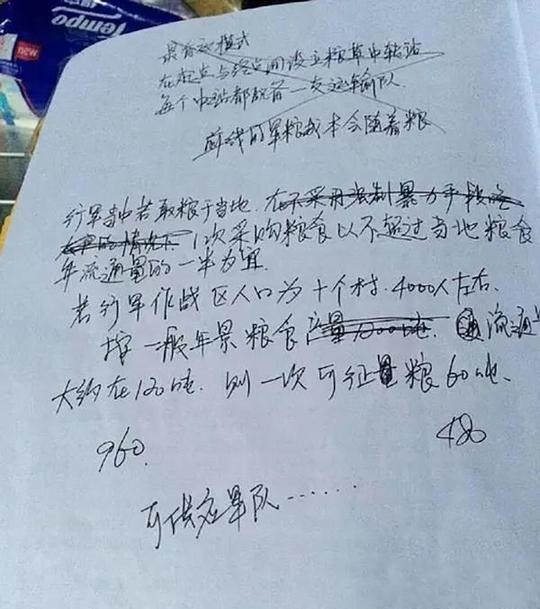 Tempo
new
最有效模式
在起点与终点间设立粮草中转站
每个中站都配首一支运输队
前线的军粮成本会随着粮
行军中若取粮于当地.在不采用强制暴力手段
的情况下1次采购粮食以不超过当地粮食
年流通量的一半为宜.
若行军作战区人口为十个村.4000人左右.
按一般年景粮食产量1200吨.流通
大约在120吨.则一次可征量粮60吨.
960.
480
可供应军队……